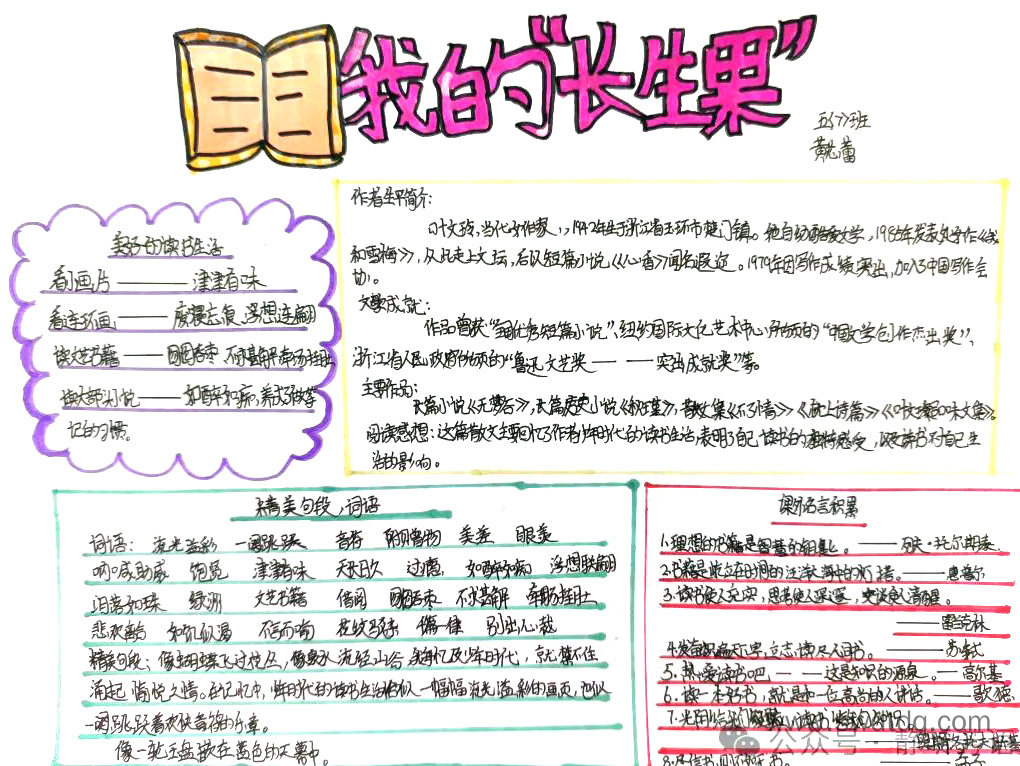 我的"长生果"
五(7)班
黄芯蕾
美好的读书生活
看画片——津津有味
看连环画——废寝忘食,浮想连翩
读文艺书籍——囫囵吞枣 不求甚解 牵肠挂肚
读大部头小说——如醉如痴,养成了做笔
记的习惯。
作者生平简介:
叶文玲,当代女作家,1942年生于浙江省玉环市楚门镇。她自幼酷爱文学,1958年发表处女作《我
和雪梅》,从此走上文坛,后以短篇小说《心香》闻名遐迩。1979年因写作成绩突出,加入了中国写作会
协。
文学成就:
作品曾获"全国优秀短篇小说",纽约国际文化艺术中心所颁的"中国文学创作杰出奖",
浙江省人民政府颁的"鲁迅文艺奖——突出成就奖"等。
主要作品:
长篇小说《无梦谷》,长篇历史小说《秋瑾》,散文集《不了情》《献上诗篇》《叶文玲文集》。
阅读感想:这篇散文主要回忆了作者少年时代的读书生活,表明了自己读书的独特感受,以及读书对自己生
活的影响。
精美句段,词语
词语: 流光溢彩 一圈跳跃 音符 羡慕 眼羡
呐喊助威 饱览 津津有味 天长日久 过瘾 如醉如痴 浮想联翩
如落如珠 绿洲 文艺书籍 借阅 囫囵吞枣 不求甚解 牵肠挂肚
悲欢离合 如饥似渴 不言而喻 花纹 偏佳 别出心裁
精美句段:像蝴蝶飞过花丛,像泉水流经山谷,每忆及少年时代,就禁不住
涌起愉悦之情。在记忆中,少年时代的读书生活恰似一幅幅流光溢彩的画页,也似
一阕跳跃着欢快音符的乐章。
像一轮玉盘嵌在蓝色的天幕中。
课外名言积累
1.理想的书籍是智慧的钥匙。——列夫·托尔斯泰
2.书籍是屹立在时间的汪洋大海中的灯塔。——惠普尔
3.读书使人充实,思考使人深邃,交谈使人清醒。
——富兰克林
4.发奋识遍天下字,立志读尽人间书。——苏轼
5.热爱读书吧,——这是知识的源泉。——高尔基
6.读一本好书,就是和一位高尚的人谈话。——歌德
公众号